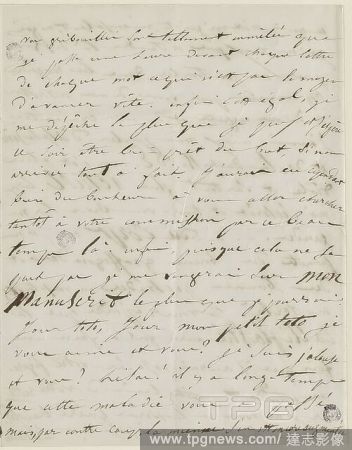 vos gribouillis sont tellement emmêlés que
je passe une heure devant chaque lettre
de chaque mot ce qui n'est pas le moyen
d'avancer vite. enfin c'est égal, je
me dépêche le plus que je puis et j'espère
ce soir être bien près du but sinon
tout à fait. J'aurais eu
bien du bonheur à vous aller chercher
tantôt à votre commission par ce beau
temps là, mais puisque cela ne se
peut pas je me vengerai sur mon
Manuscrit le plus que je pourrai.
Jour Toto, Jour mon petit Toto, je
vous aime et vous? je suis jalouse
et vous? hélas! il y a longtemps
que cette maladie vous
mais par contre coup la mienne
TPG
www.tpgnews.com / 達志影像